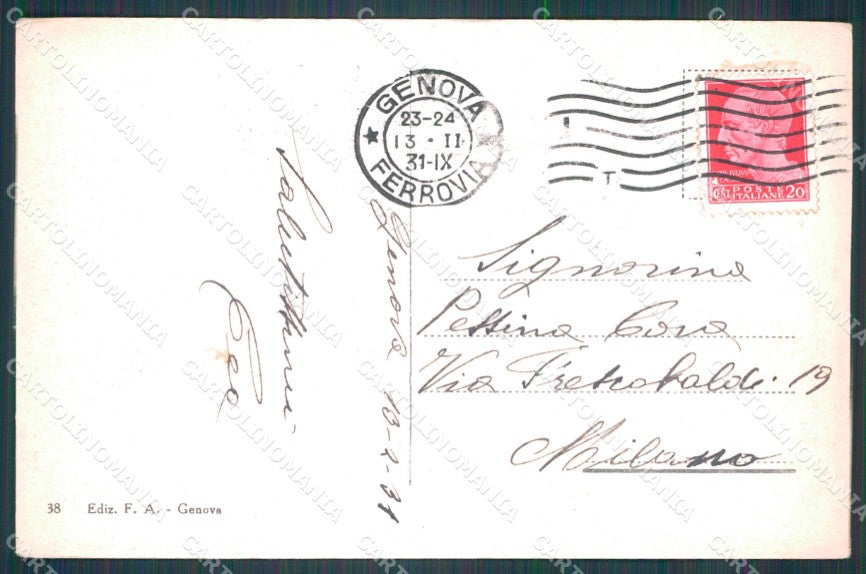 GENOVA
23-24
13 · II
31-IX
FERROVIA
T
POSTE
ITALIANE
CENT 20
Genova 13-2-31
Salutissimi
Signorina
Pessina Cora
Via Frescobaldi 19
Milano
38 Ediz. F. A. - Genova
CARTOLINOMANIA